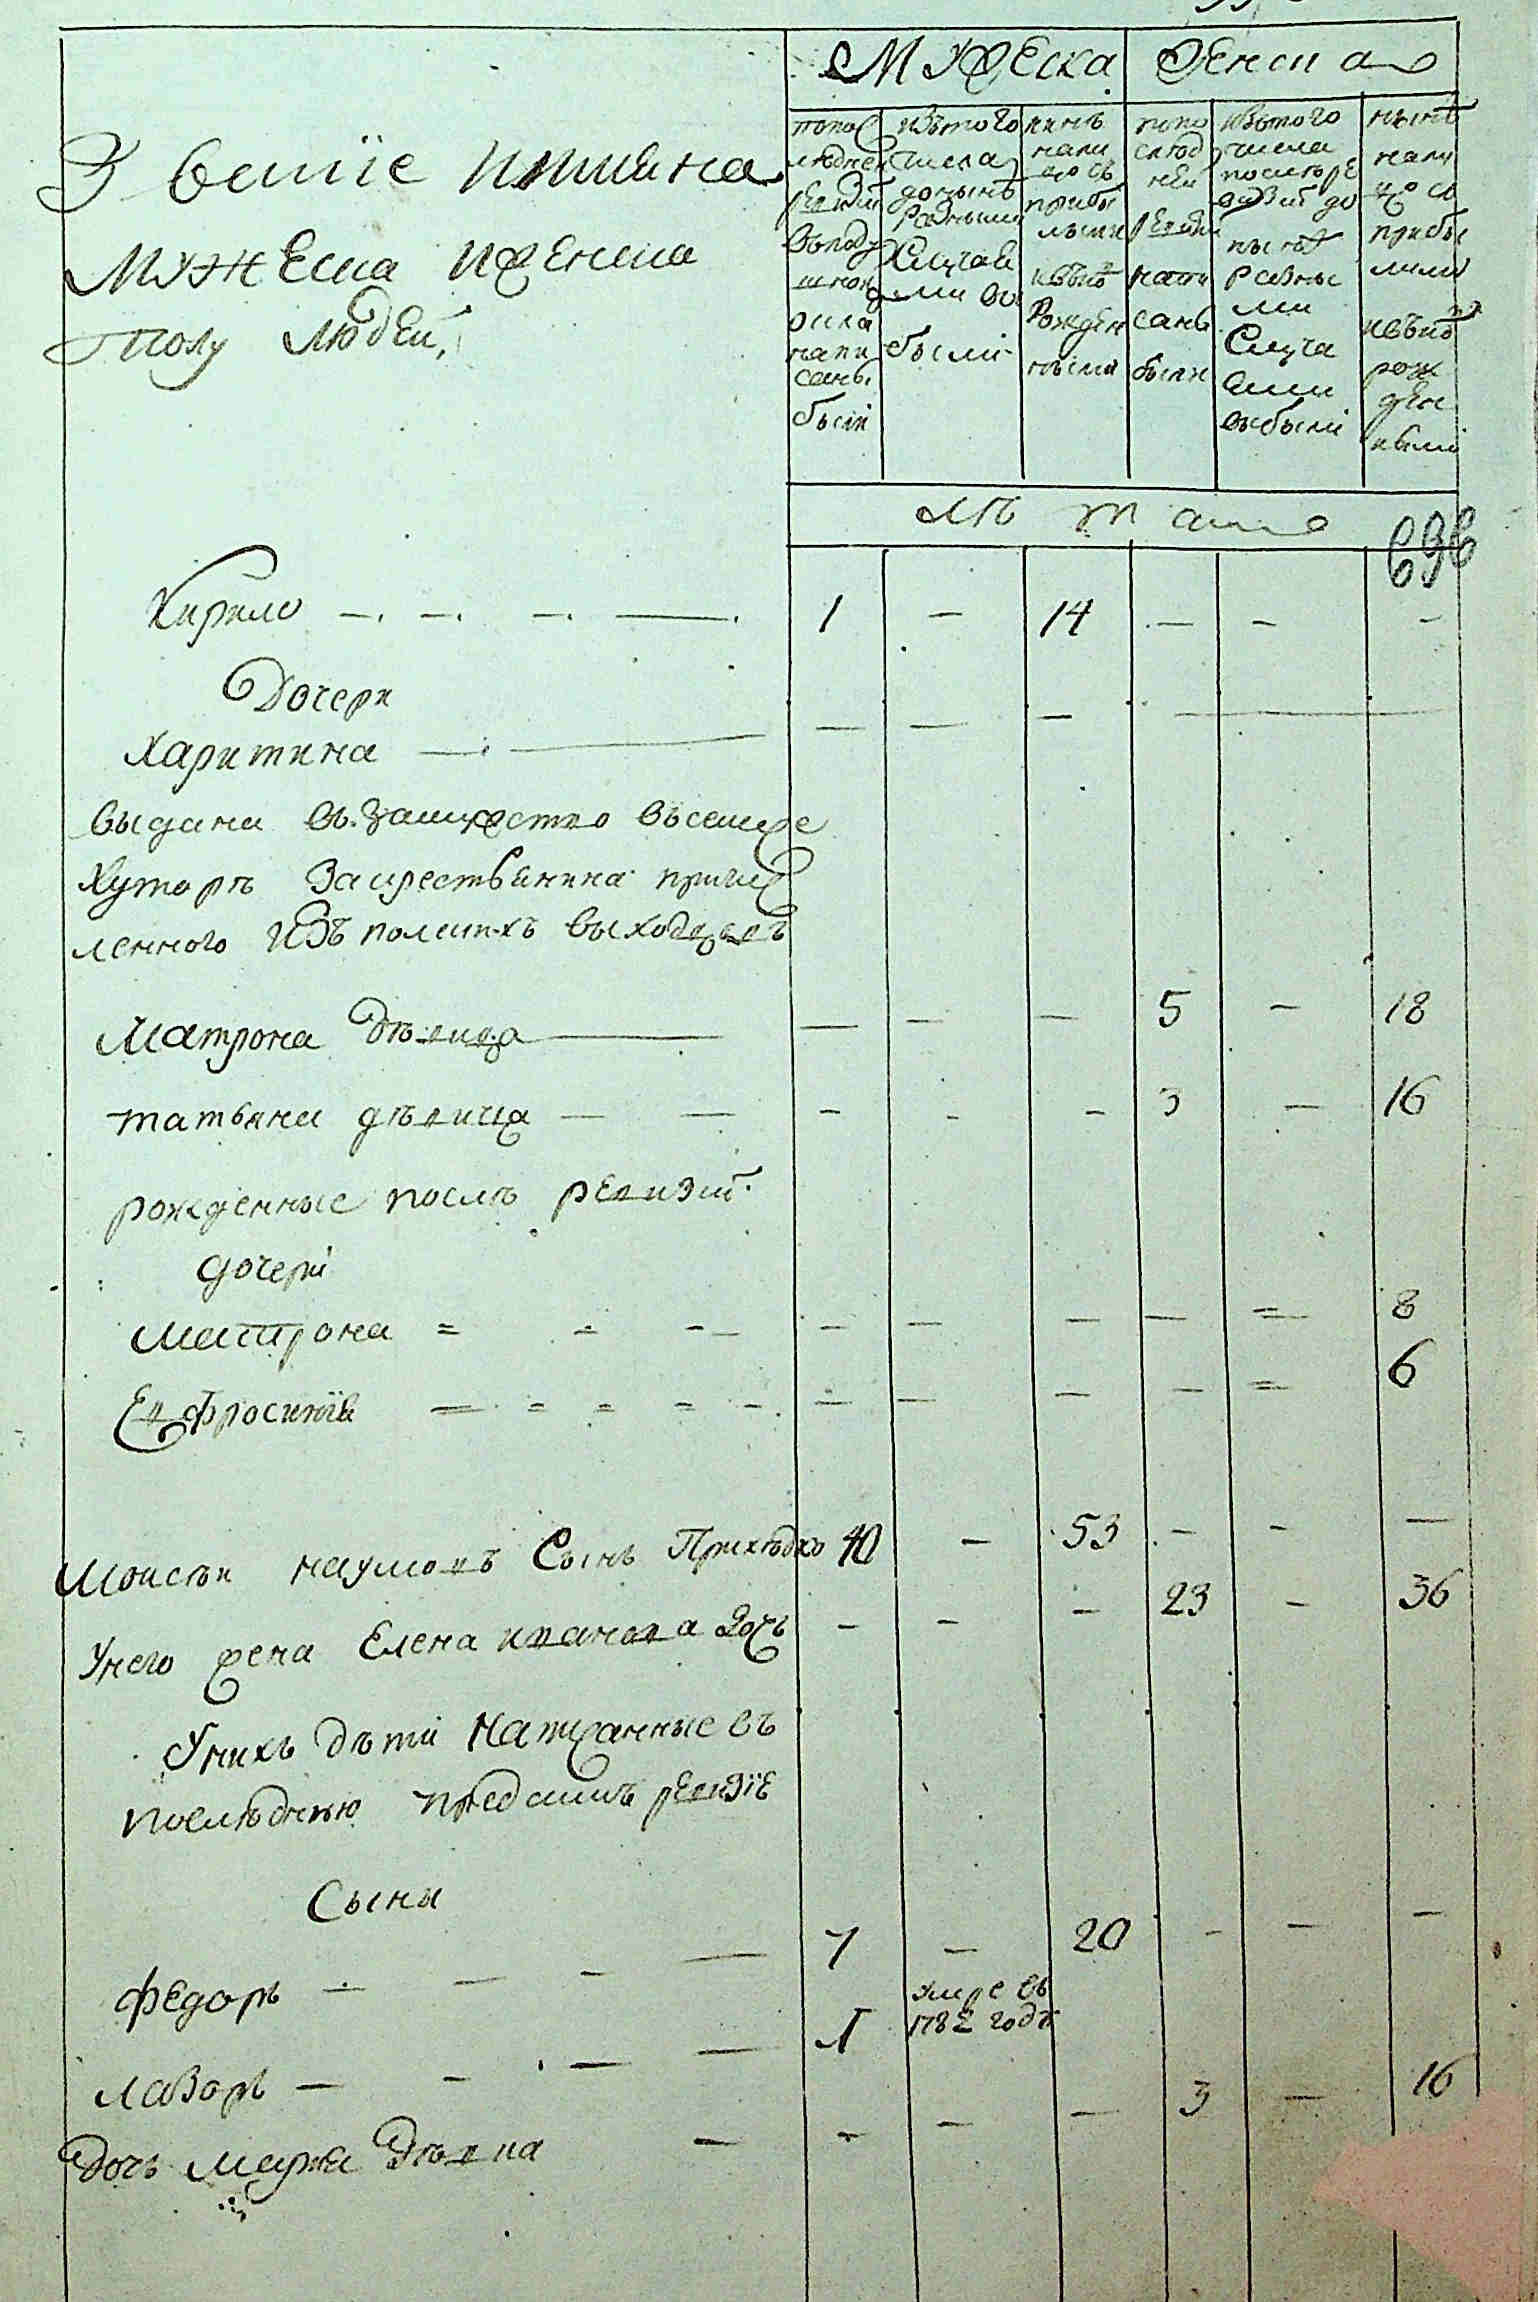 Мужеска Женска
Звание имяна
Мужеска и женска
полу людей.
по пос
ледней
ревизїи
в подуш
ной
оклад
напи
саны
были
изъ того
числа
до нынѣ
разными
случая
ми вы
были
нынѣ
нали
цо съ
прибы
лыми
и вновь
рожден
ными
по по
след
ней
ревизїи
напи
саны
были
изъ того
числа
после ре
визїи до
нынѣ
разны
ми
случа
ями
выбыли
нынѣ
нали
цо съ
прибы
лыми
и вновь
рож
ден
ными
лѣта
Кирило — — — — 1 — 14 — — —
Дочери
Харитина — — — — —
выдана въ замужество въ семже
хуторѣ за крестьянина причис
ленного изъ полскихъ выходцовъ
Матрона дѣвица — — — — 5 — 18
татьяна дѣвица — — — — — 3 — 16
рожденные послѣ ревизїи
дочери
Матрона = - - — — — — = 8
Евфросинїя = = = - - — — — — = 6
Моисѣй наумовъ сынъ Прихедко 40 — 53 — — —
У него жена Елена иванова дочь — — — 23 — 36
У нихъ дѣти написанные въ
последнюю предъ симъ ревизїе
Сыны
Федоръ — — — — 7 — 20 — — —
Лазоръ — — — — 1 умре въ
1782 годѣ
дочь Марїя дѣвка — — — — 3 — 16